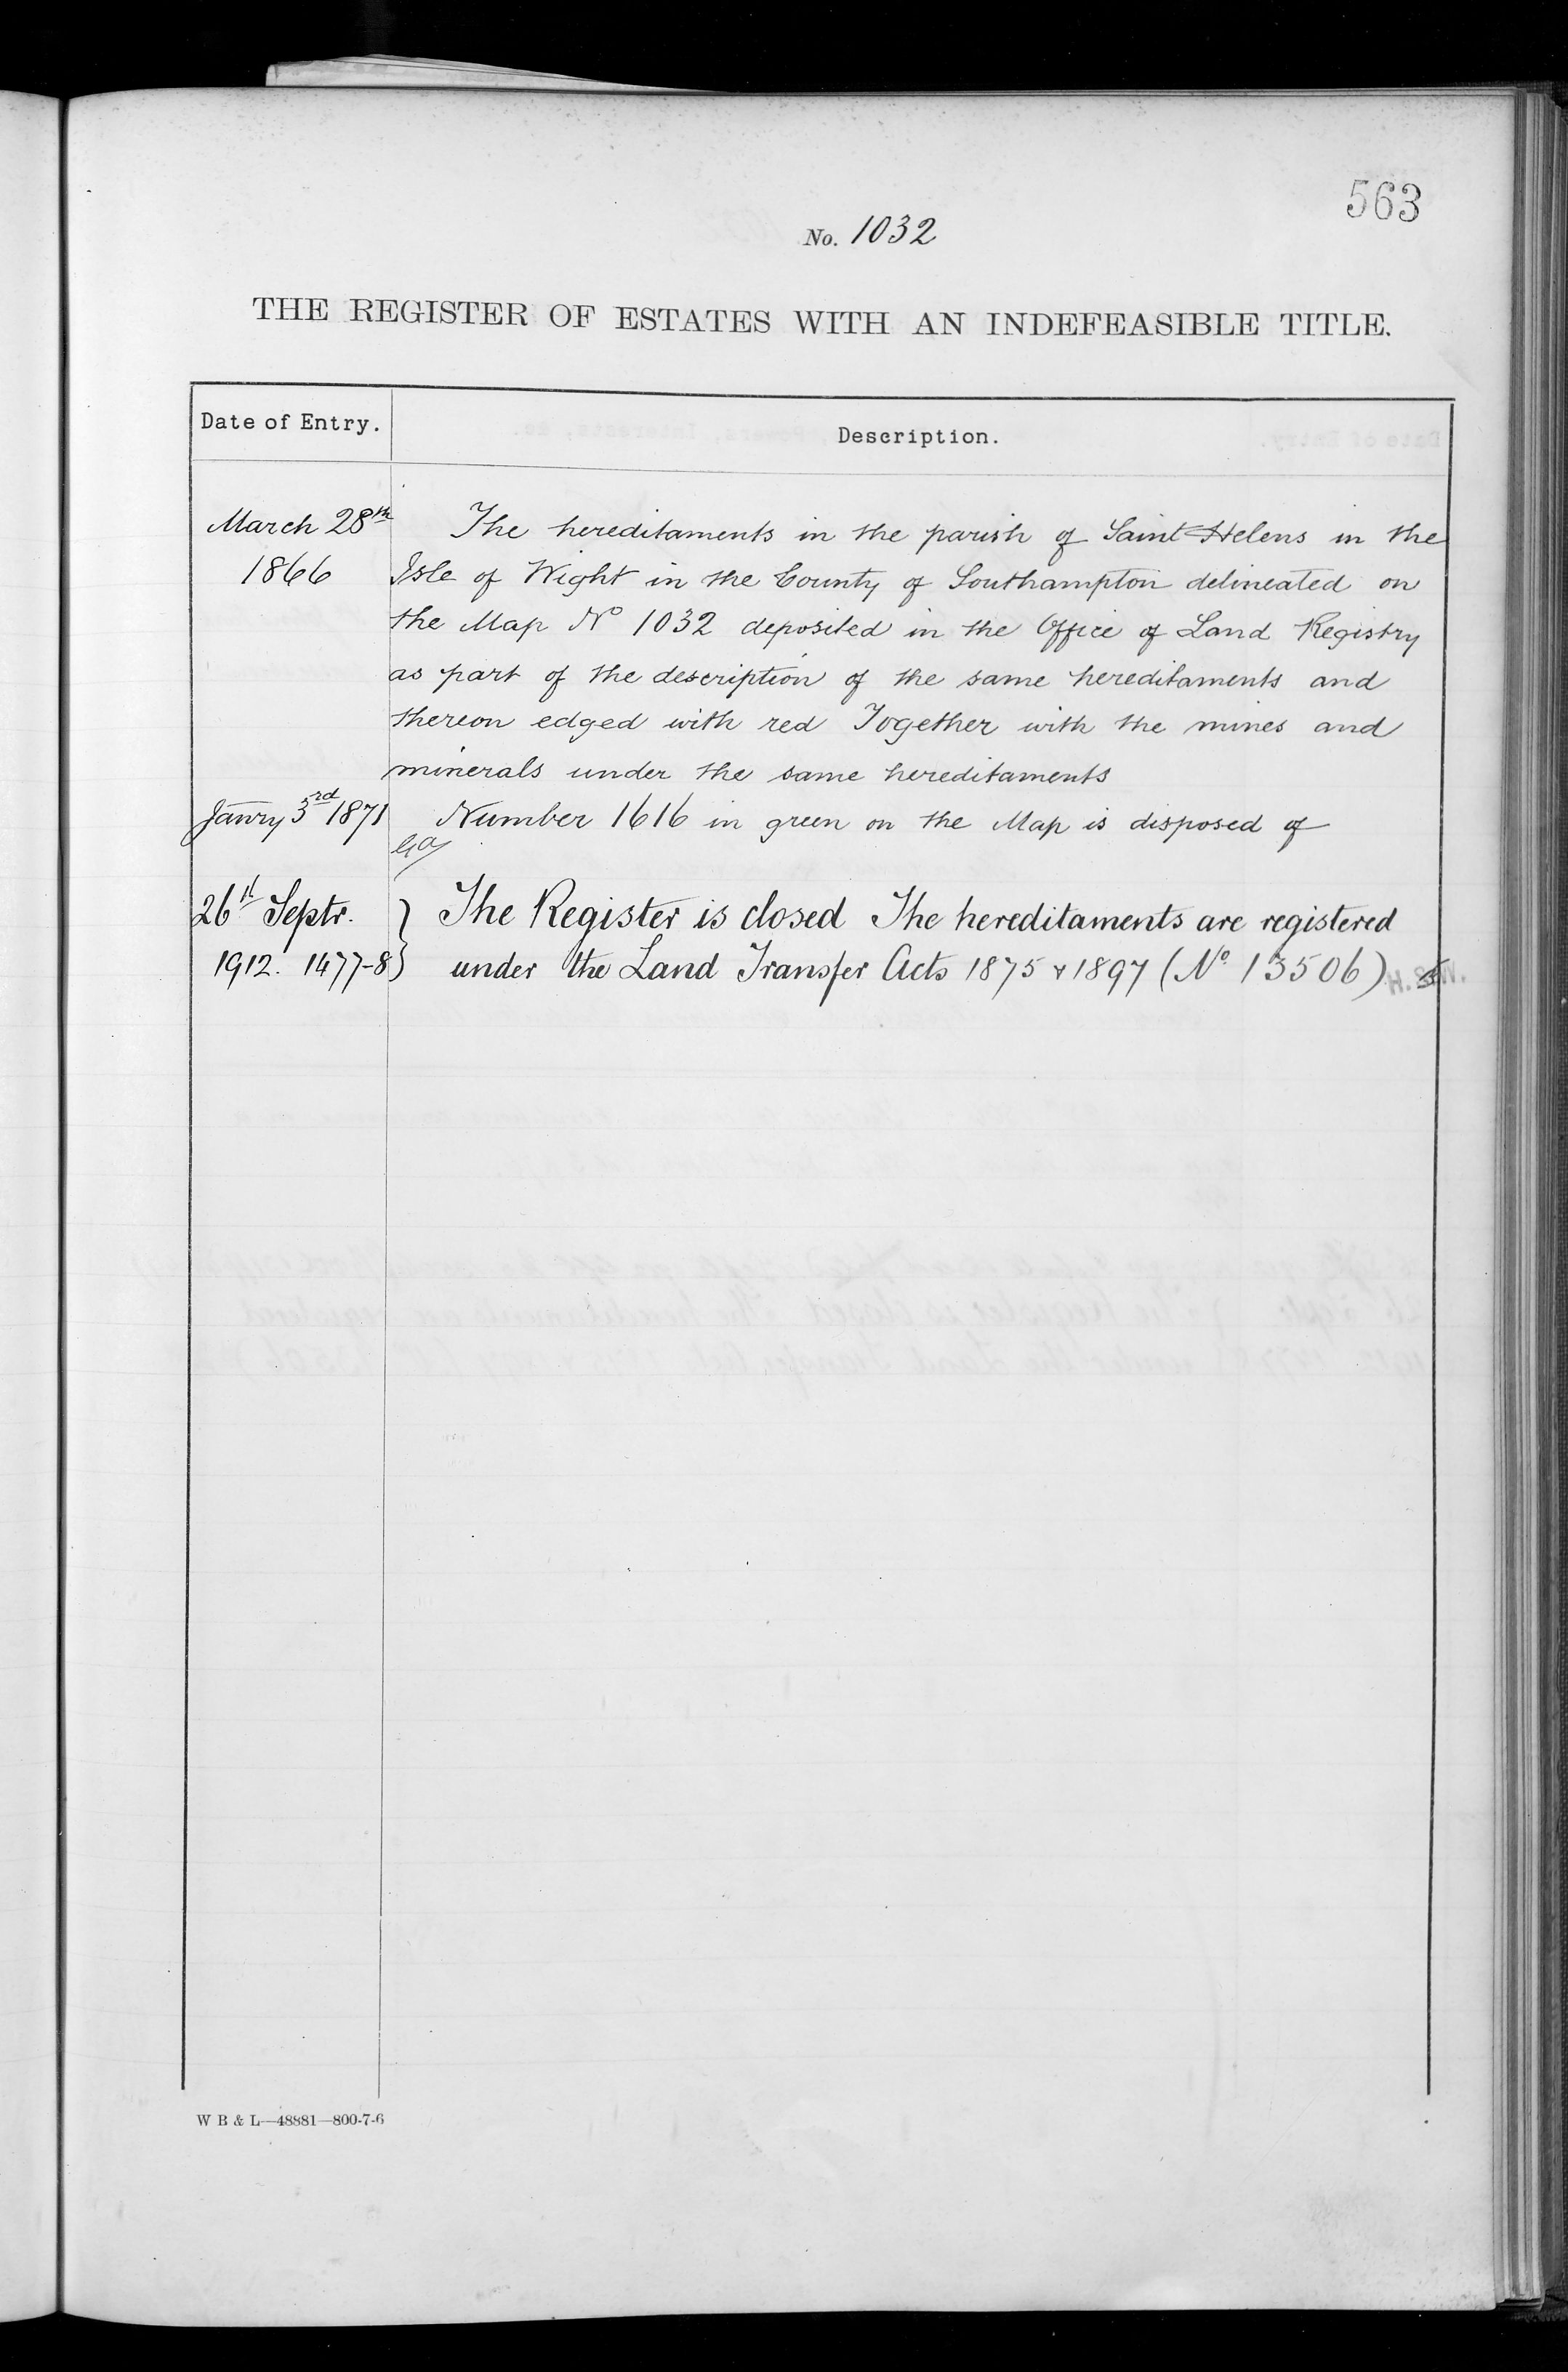 563
No. 1032
THE REGISTER OF ESTATES WITH AN INDEFEASIBLE TITLE.
Date of Entry. Description.
March 28th The hereditaments in the parish of Saint Helens in the
1866 Isle of Wight in the County of Southampton delineated on
the Map No 1032 deposited in the Office of Land Registry
as part of the description of the same hereditaments and
thereon edged with red Together with the mines and
minerals under the same hereditaments
Janry 3rd 1871 Number 1616 in green on the Map is disposed of
26th Septr. } The Register is closed The hereditaments are registered
1912. 1477-8 } under the Land Transfer Acts 1875 & 1897 (No. 13506)
W B & L—48881—800-7-6